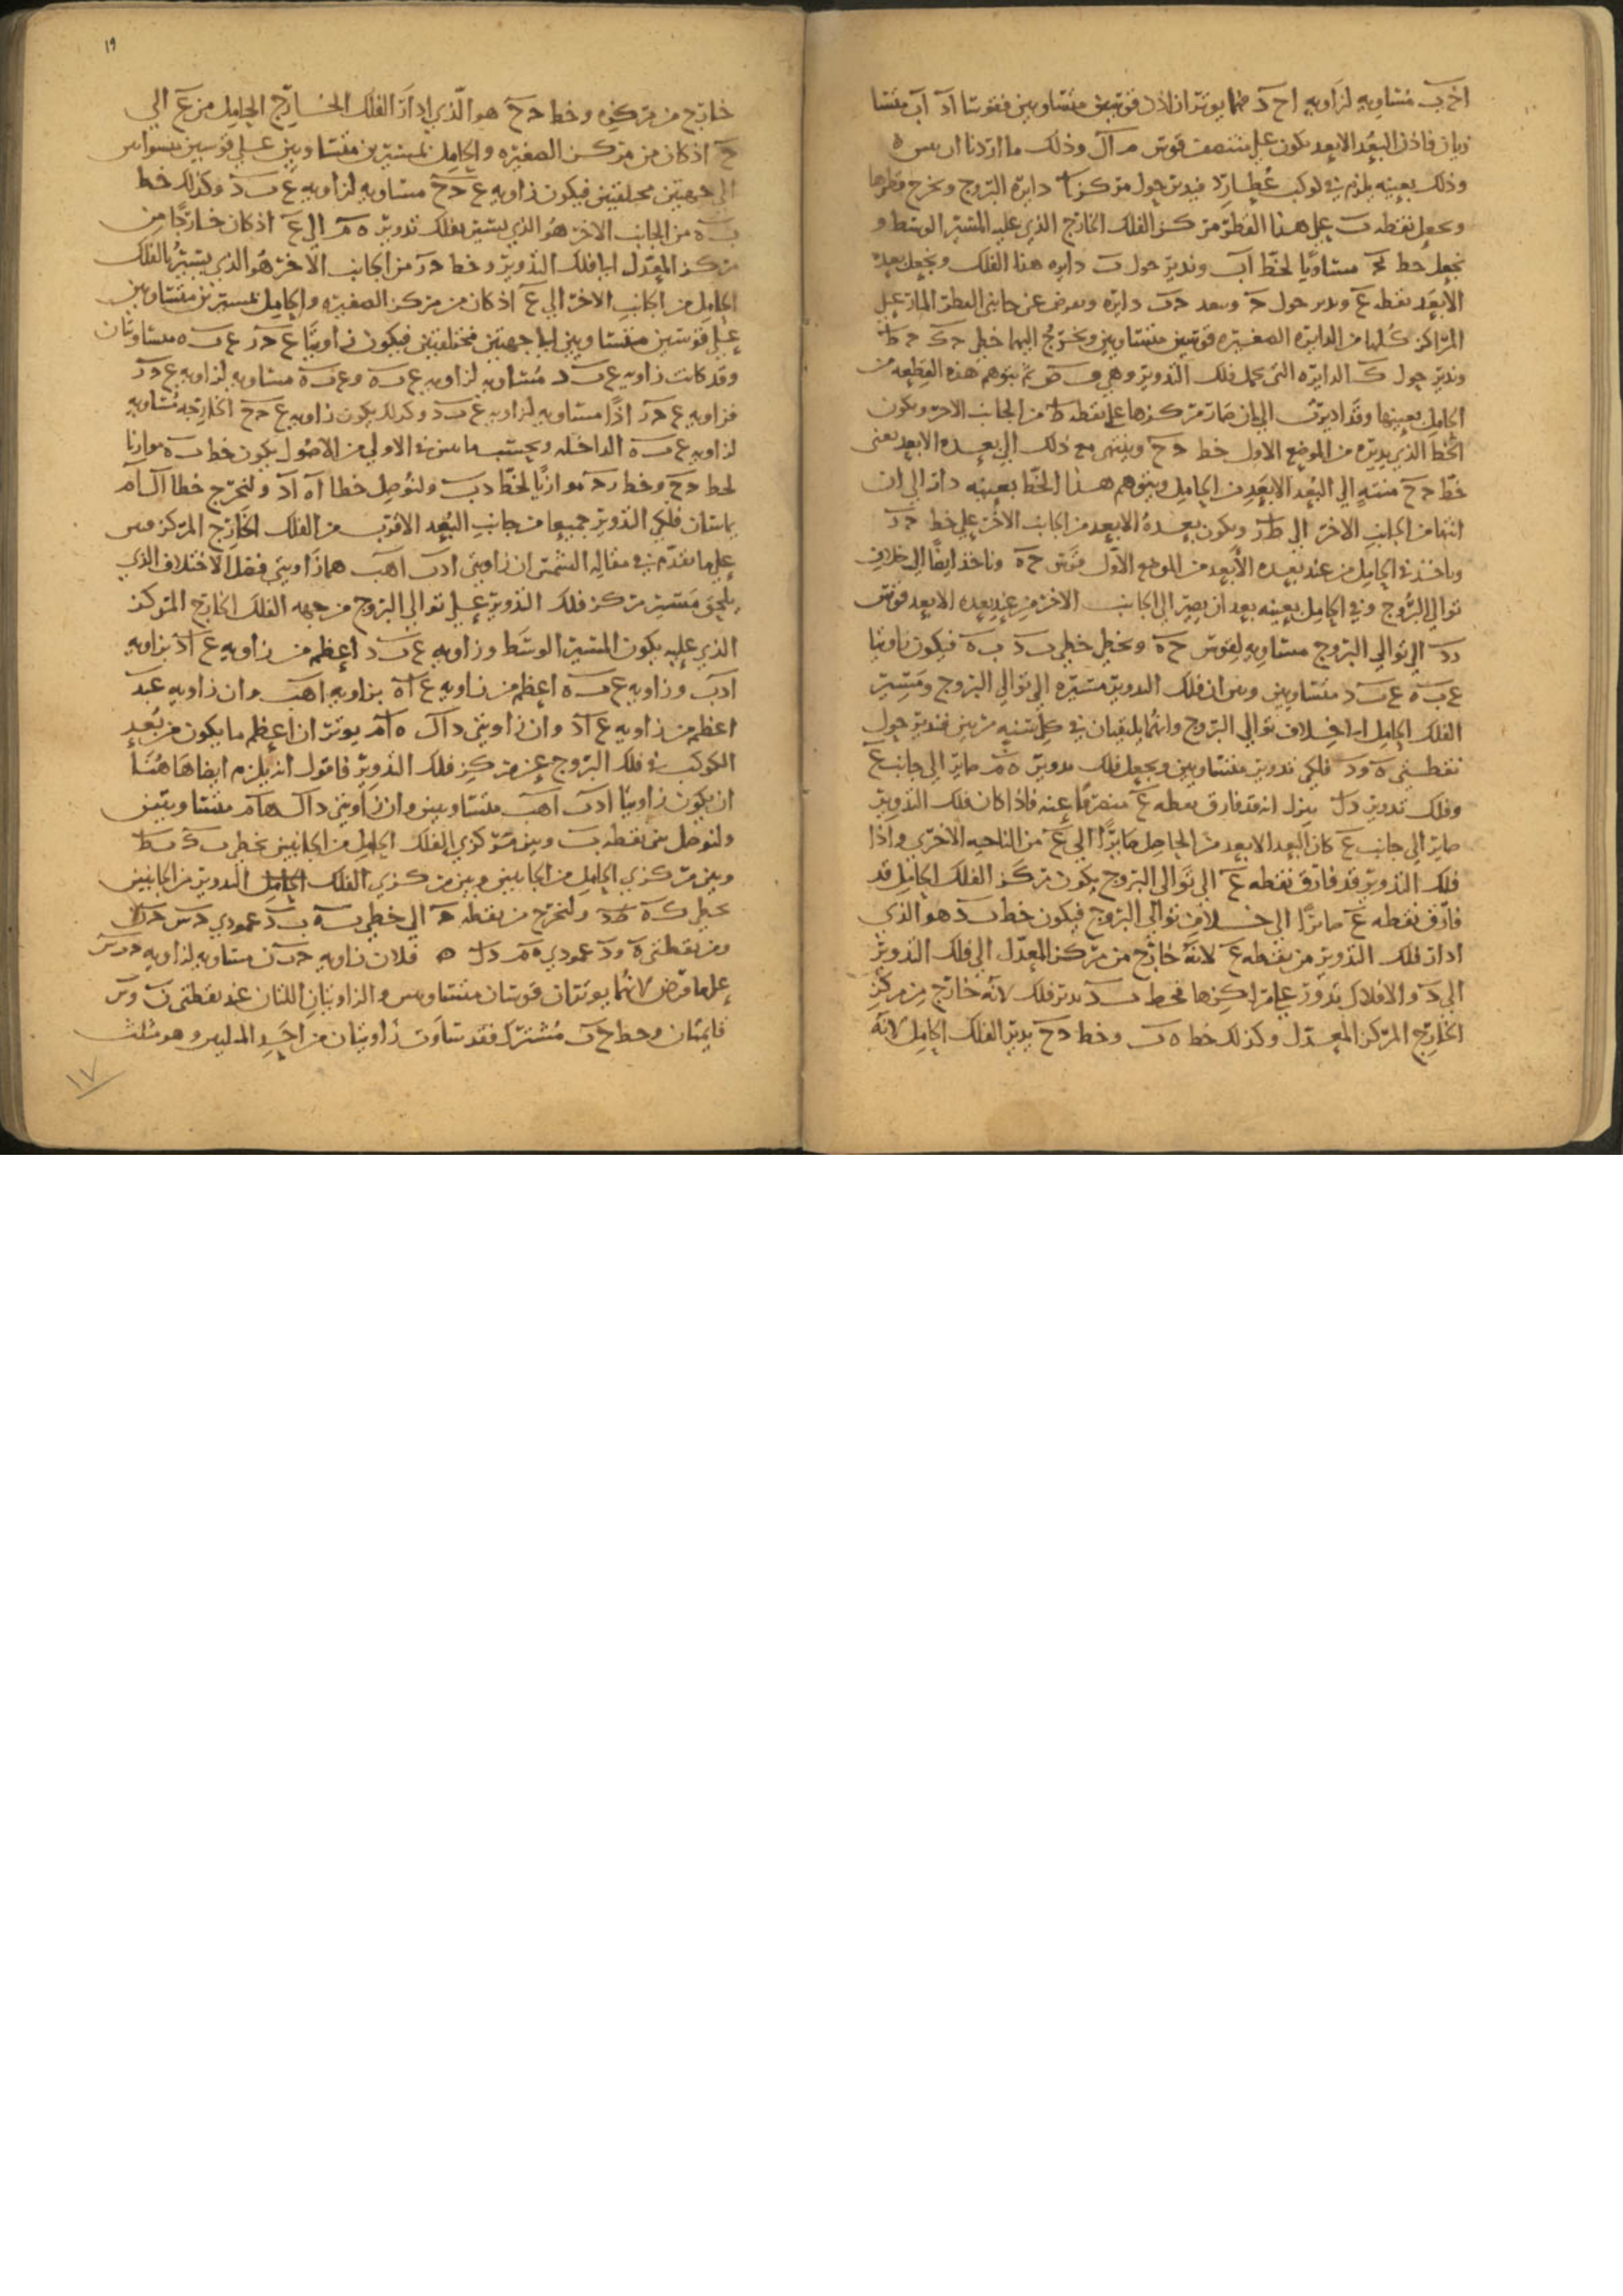 اح ب مساويه لزاويه اح د فهما يوتران اذن قوسين متساويين فقوسا اد اب متسا
ويان فاذن البعد الابعد يكون على منتصف قوس م ال وذلك ما اردنا ان نبين ه
وذلك بعينه يلزم في كوكب عطارد فندير حول مركز ا دايرة البروج ونخرج قطرها
ونجعل نقطه ب على هذا القطر مركز الفلك الخارج الذي عليه المسير الوسط و
نجعل خط مساويا لخط اب وندير حول ب دايره هذا الفلك ونجعل بعده
الابعد نقطه ع وندير حول ح وببعد ح ب دايره ونفرض عن جانبي القطر المار على
المراكز كلها من الدايره الصغيره قوسين متساويين ونخرج اليهما خطي ح ك ح ط
وندير حول ك الدايره التي تحمل فلك التدوير وهي ف ص ثم نتوهم هذه القطعه من
الحامل بعينها وقد اديرت الى ان صار مركزها على نقطه ط من الجانب الاخر ويكون
الخط الذي يديره من الموضع الاول خط ح ح وينتهي مع ذلك الى بعده الابعد نعني
خط ح ح منتهى الى البعد الابعد من الحامل ونتوهم هذا الخط بعينه دار الى ان
انتها من الجانب الاخر الى ط ر ويكون بعده الابعد من الجانب الاخر على خط ح ر
وناخذ في الحامل من عند بعده الابعد من الموضع الاول قوس ح ه وناخذ ايضا الى خلاف
توالي البروج وفي الحامل بعينه بعد ان يصير الى الجانب الاخر من عند بعده الابعد قوس
ر د الى توالي البروج مساويه لقوس ح ه ونخط خطي ب د ب ه فيكون زاويتا
ع ب ه ع ب د متساويين وبين ان فلك التدوير مسيره الى توالي البروج ومسير
الفلك الحامل الى خلاف توالي البروج وانهما يلتقيان في كل سنه مرتين فندير حول
نقطتي ه ود فلكي تدوير متساويين ونجعل فلك تدوير ه م صاير الى جانب ع
وفلك تدوير د ل ننزل انه قد فارق نقطه ع منصرفا عنه فاذا كان فلك التدوير
صاير الى جانب ع كان البعد الابعد من الحامل صايرا الى ع من الناحيه الاخرى واذا
فلك التدوير قد فارق نقطه ع الى توالي البروج يكون مركز الفلك الحامل قد
فارق نقطه ع صايرا الى خلاف توالي البروج فيكون خط ب د هو الذي
ادار فلك التدوير من نقطه ع لانه خارج من مركز المعدل الى فلك التدوير
الى د والافلاك تدور على مراكزها فخط ب د يدير فلك لانه خارج من مركز
الخارج المركز المعدل وكذلك خط ه ب وخط ح ح يدير الفلك الحامل لانه
١٩
خارج من مركزه وخط ح ح هو الذي ادار الفلك الخارج الحامل من ع الى
ح اذ كان من مركز الصغيره والحامل مسيرين متساويين على قوسين
الى جهتين مختلفتين فيكون زاويه ع ح ح مساويه لزاويه ع ب د وكذلك خط
ب ه من الجانب الاخر هو الذي يسير فلك تدوير ه م الى ع اذ كان خارجا من
مركز المعدل الى فلك التدوير وخط ح ر من الجانب الاخر هو الذي يسير الفلك
الحامل من الجانب الاخر الى ع اذ كان من مركز الصغيره والحامل مسيرين متساويين
على قوسين متساويين الى جهتين مختلفتين فيكون زاويتا ع ح ر ع ب ه متساويتان
وقد كانت زاويه ع ب د مساويه لزاويه ع ب ه وع ب ه مساويه لزاويه ع ح ر
فزاويه ع ح ر اذا مساويه لزاويه ع ب د وكذلك يكون زاويه ع ح ح الخارجه مساويه
لزاويه ع ب ه الداخله وبحسب ما بين في الاولى من الاصول يكون خط ب ه موازيا
لخط ح ح وخط ر ح موازيا لخط د ب ولنوصل خطا اه اد ولنخرج خطا ال ام
يماسان فلكي التدوير جميعا من جانب البعد الاقرب من الفلك الخارج المركز وبين
على ما تقدم في مقاله الشمس ان زاويتي ادب اهب هما زاويتي فضل الاختلاف الذي
يلحق مسير مركز فلك التدوير على توالي البروج من جهه الفلك الخارج المركز
الذي عليه يكون المسير الوسط وزاويه ع ب د اعظم من زاويه ع اد بزاويه
ادب وزاويه ع ب ه اعظم من زاويه ع اه بزاويه اهب وان زاويه ع ب د
اعظم من زاويه ع اد وان زاويتي داك ه ام يوتران اعظم ما يكون من بعد
الكوكب في فلك البروج عن مركز فلك التدوير فاقول انه يلزم ايضا هاهنا
ان يكون زاويتا ادب اهب متساويين وان زاويتي داك هام متساويتين
ولنوصل بين نقطه ب وبين مركزي الفلك الحامل من الجانبين بخطي ب ك ب ط
وبين مركزي الحامل من الجانبين وبين مركزي الفلك الحامل التدوير من الجانبين
بخطي ك ه ط د ولنخرج من نقطه ح الى خطي ب ه ب د عمودي ح س ح ن
ومن نقطتي ه ود عمودي ه م د ل ه فلان زاويه ح ب ن مساويه لزاويه ح ب س
على ما فرض لانهما يوتران قوسان متساويين والزاويتان اللتان عند نقطتي ن وس
قايمتان وخط ح ب مشترك فقد تساوت زاويتان من احد المثلثين وهو مثلث
١٧